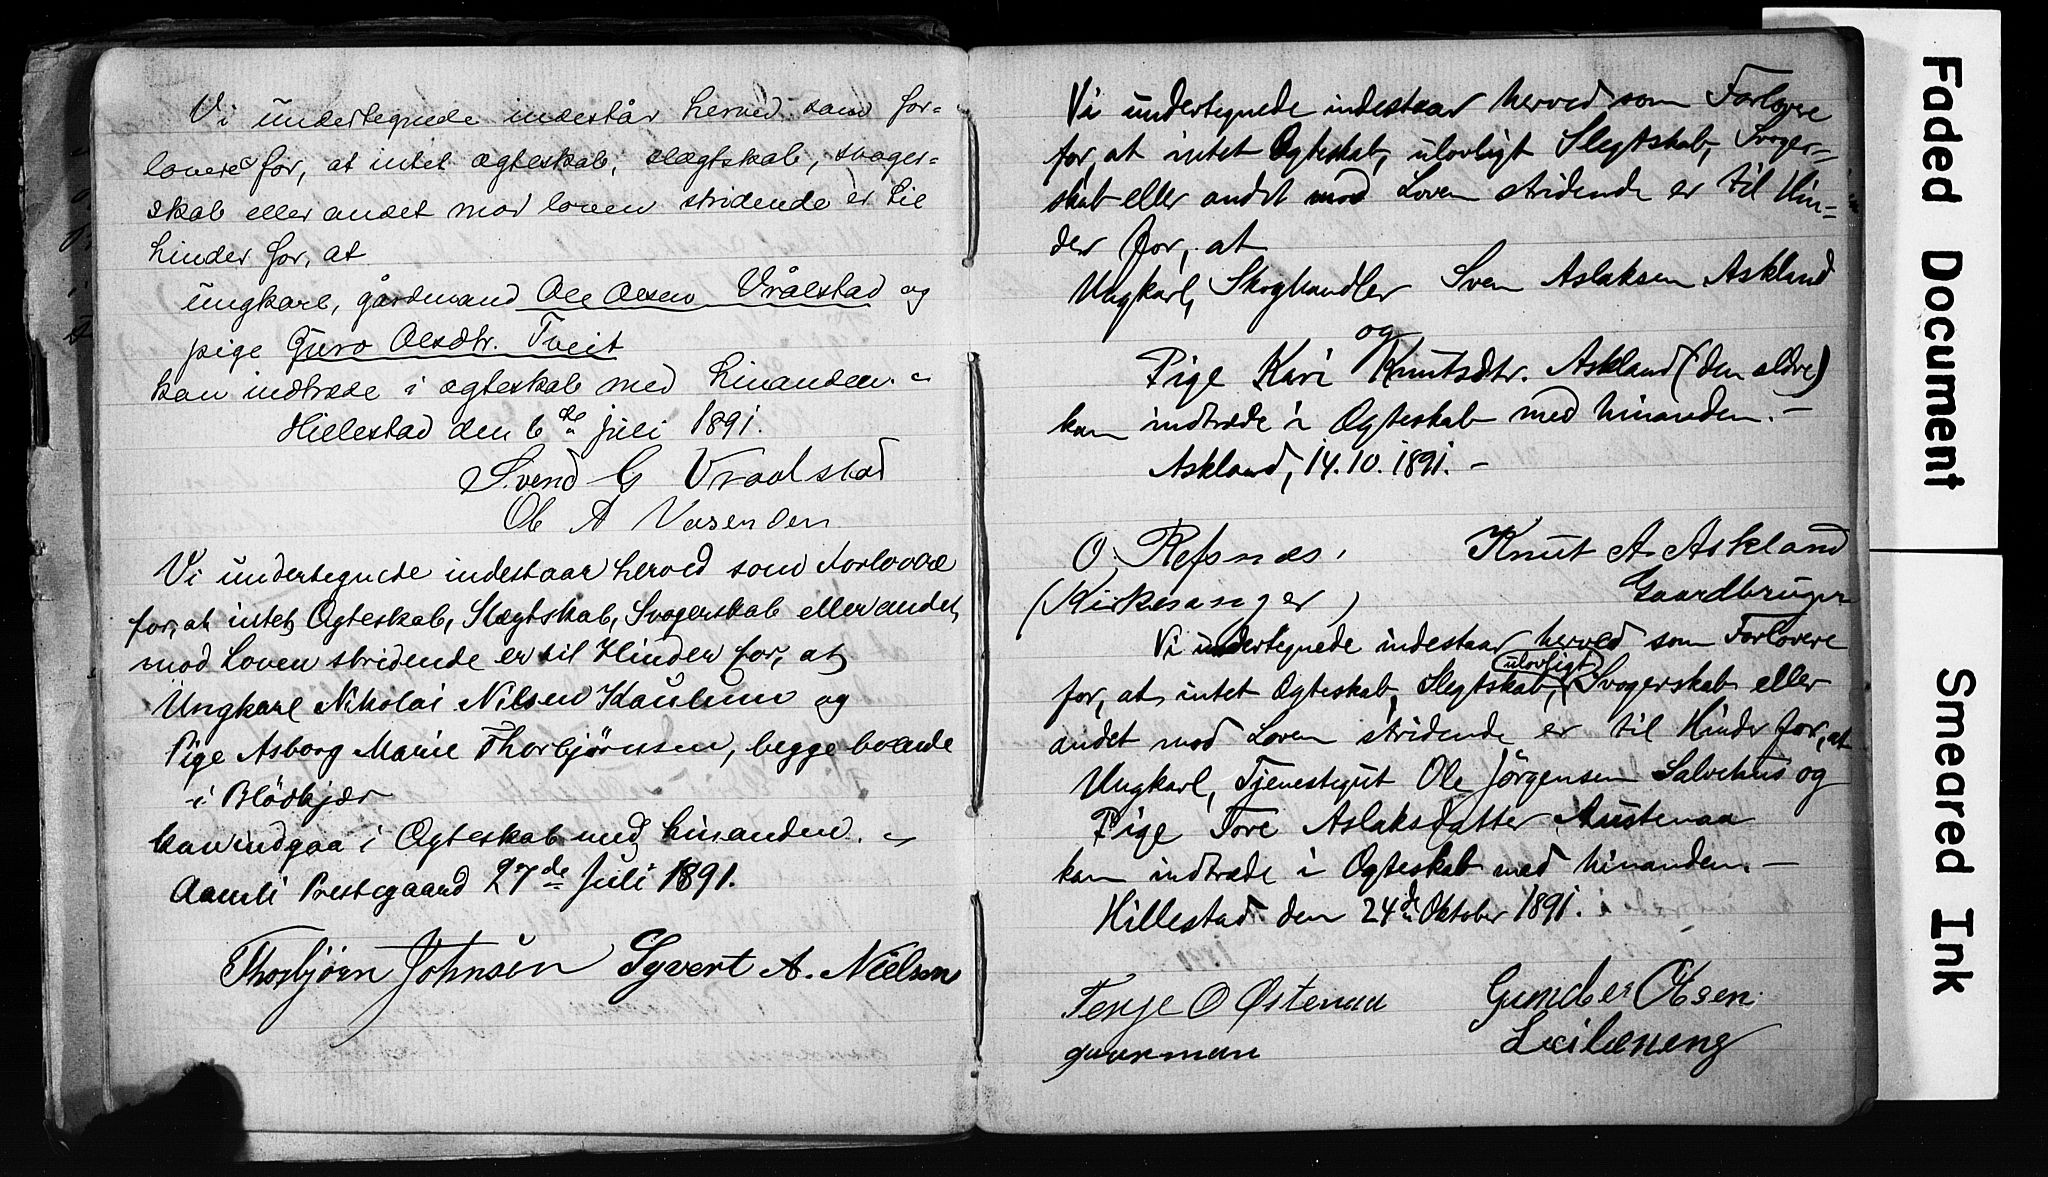 Vi undertegnede indestår herved som for-
lovere for, at intet ægteskab, slægtskab, svoger-
skab eller andet mod loven stridende er til
hinder for, at
ungkarl, gårdmand Ole Olsen Vrålstad og
pige Guro Olsdtr. Tveit
kan indtræde i ægteskab med hinanden. -
Hillestad den 6te juli 1891.
Svend G Vraalstad
Ole A Vasenden
Vi undertegnede indestaar herved som Forlovere
for, at intet Ægteskab, Slægtskab, Svogerskab eller andet
mod Loven stridende er til Hinder for, at
Ungkarl Nikolai Nilsen Kaulum og
Pige Asborg Marie Thorbjörnsen, begge boende
i Blödkjær
kan indgaa i Ægteskab med hinanden. -
Aamli Prestegaard 27de Juli 1891.
Thorbjörn Johnsen Syvert A. Nielsen
Vi undertegnede indestaar herved som Forlovere
for, at intet Ægteskab, ulovligt Slegtskab, Svoger=
skab eller andet mod Loven stridende er til Hin=
der for, at
Ungkarl, Skoghandler Sven Aslaksen Askland
og
Pige Kari Knutsdtr. Askland (den eldre)
kan indtræde i Ægteskab med hinanden. -
Askland, 14.10.1891. -
O. Refsnæs. Knut A. Askland
(Kirkesanger) Gaardbruger
Vi undertegnede indestaar herved som Forlovere
ulovligt
for, at intet Ægteskab, Slegtskab, Svogerskab eller
andet mod Loven stridende er til Hinder for, at
Ungkarl, Tjenestegut Ole Jörgensen Salvehus og
Pige Tore Aslaksdatter Austenaa
kan indtræde i Ægteskab med hinanden. -
Hillestad den 24de Oktober 1891.
Terje O Østenaa Gunder Olsen
Faded Document
Smeared Ink